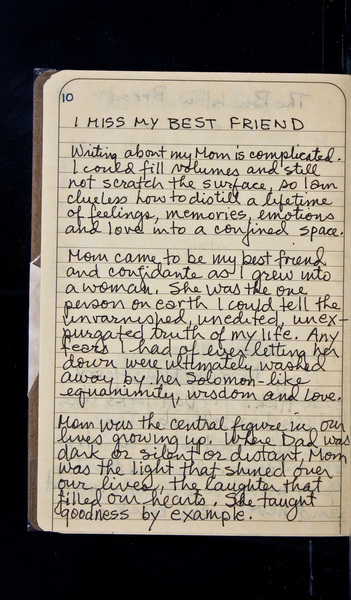 10
I MISS MY BEST FRIEND
Writing about my Mom is complicated.
I could fill volumes and still
not scratch the surface, so I am
clueless how to distill a lifetime
of feelings, memories, emotions
and love into a confined space.
Mom came to be my best friend
and confidante as I grew into
a woman. She was the one
person on earth I could tell the
unvarnished, unedited, unex-
purgated truth of my life. Any
fears I had of ever letting her
down were ultimately washed
away by her Solomon-like
equanimity, wisdom and love.
Mom was the central figure in our
lives growing up. Where Dad was
dark or silent or distant, Mom
was the light that shined over
our lives, the laughter that
filled our hearts. She taught
goodness by example.